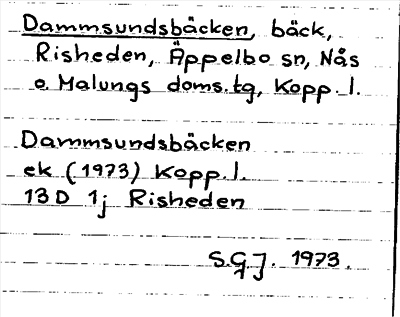 Dammsundsbäcken, bäck,
Risheden, Äppelbo sn, Nås
o. Malungs doms.tg, Kopp. l.
Dammsundsbäcken
ek (1973) Kopp.l.
13 D 1j Risheden
S.G.J. 1973.